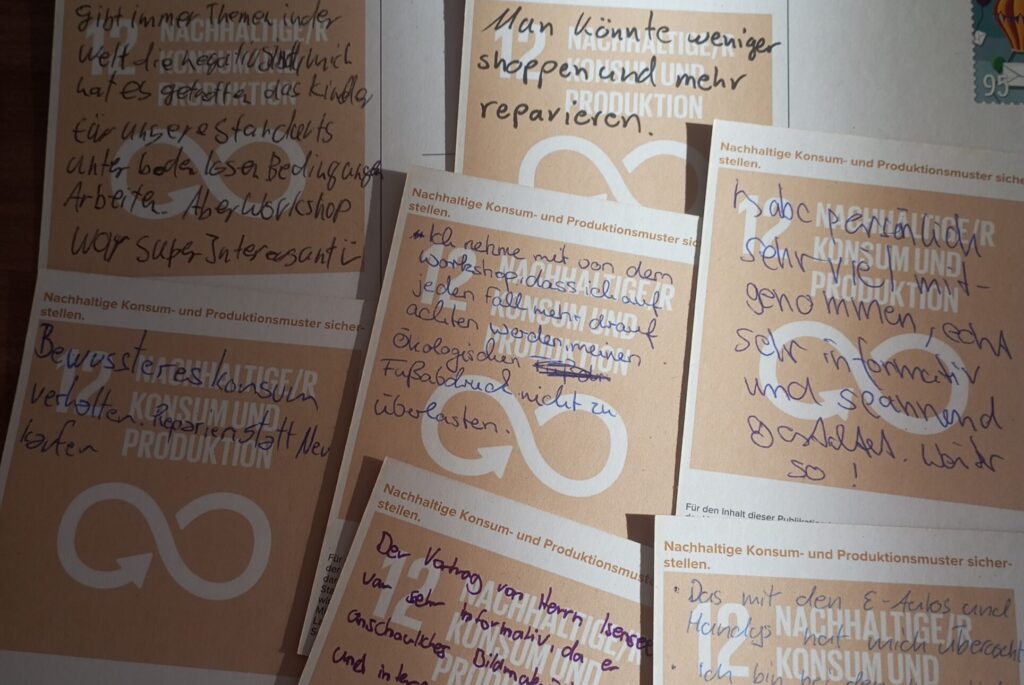 gibt immer Themen in der
Welt die negativ sind, mich
hat es getroffen das Kinder
für unsere Standerts
unter boden losen Bedingungen
Arbeiten. Aber Workshop
war super Interessant
12 NACHHALTIGE/R
KONSUM UND
PRODUKTION
Man könnte weniger
shoppen und mehr
reparieren.
12 NACHHALTIGE/R
KONSUM UND
PRODUKTION
95
Nachhaltige Konsum- und Produktionsmuster siche
stellen.
habe persönlich
sehr viel mit-
genommen, echt
sehr informativ
und spannend
gestaltet. Weiter
so!
12 NACHHALTIGE/R
KONSUM UND
PRODUKTION
Für den Inhalt dieser Publikation
Nachhaltige Konsum- und Produktionsmuster sic
stellen.
Ich nehme mit von dem
Workshop, dass ich auf
jeden Fall mehr darauf
achten werde, meinen
Ökologischen
Fußabdruck nicht zu
überlasten.
12 NACHHALTIGE/R
KONSUM UND
PRODUKTION
Nachhaltige Konsum- und Produktionsmuster sicher-
stellen.
Bewussteres konsum
verhalten. Reparien statt Neu
kaufen
12 NACHHALTIGE/R
KONSUM UND
PRODUKTION
Nachhaltige Konsum- und Produktionsmuster
stellen.
Der Vortrag von Herrn Isensee
war sehr informativ, da er
anschauliches
und
12 NACHHALTIGE/R
KONSUM UND
Nachhaltige Konsum- und Produktionsmuster sicher-
stellen.
• Das mit den E-Autos und
Handys hat mich überrascht
• Ich bin bei
12 NACHHALTIGE/R
KONSUM UND